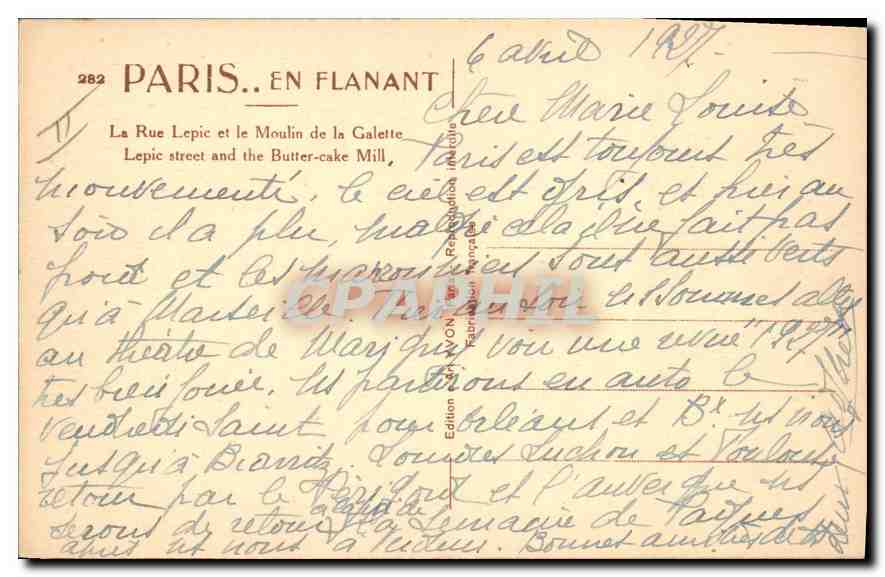 282 PARIS.. EN FLANANT
La Rue Lepic et le Moulin de la Galette
Lepic street and the Butter-cake Mill.
Edition d'art YVON Paris Reproduction interdite
Fabrication française
CPAPHIL
II
6 avril 1927.
Chère Marie Louise
Paris est toujours très
mouvementé, le ciel est gris, et hier au
soir il a plu, malgré cela il ne fait pas
froid et les marronniers sont aussi verts
qu'à Marseille. Hier au soir ns sommes allés
au théâtre de Marigny voir une revue "1927"
très bien jouée. ns partirons en auto le
Vendredi Saint pour Orléans et Bx. ns irons
jusqu'à Biarritz. Lourdes Luchon et Toulouse
retour par le Périgord et l'auvergne ns
serons de retour à la fin de la semaine de Pâques
après ns irons à Verdun. Bonnes amitiés de ts